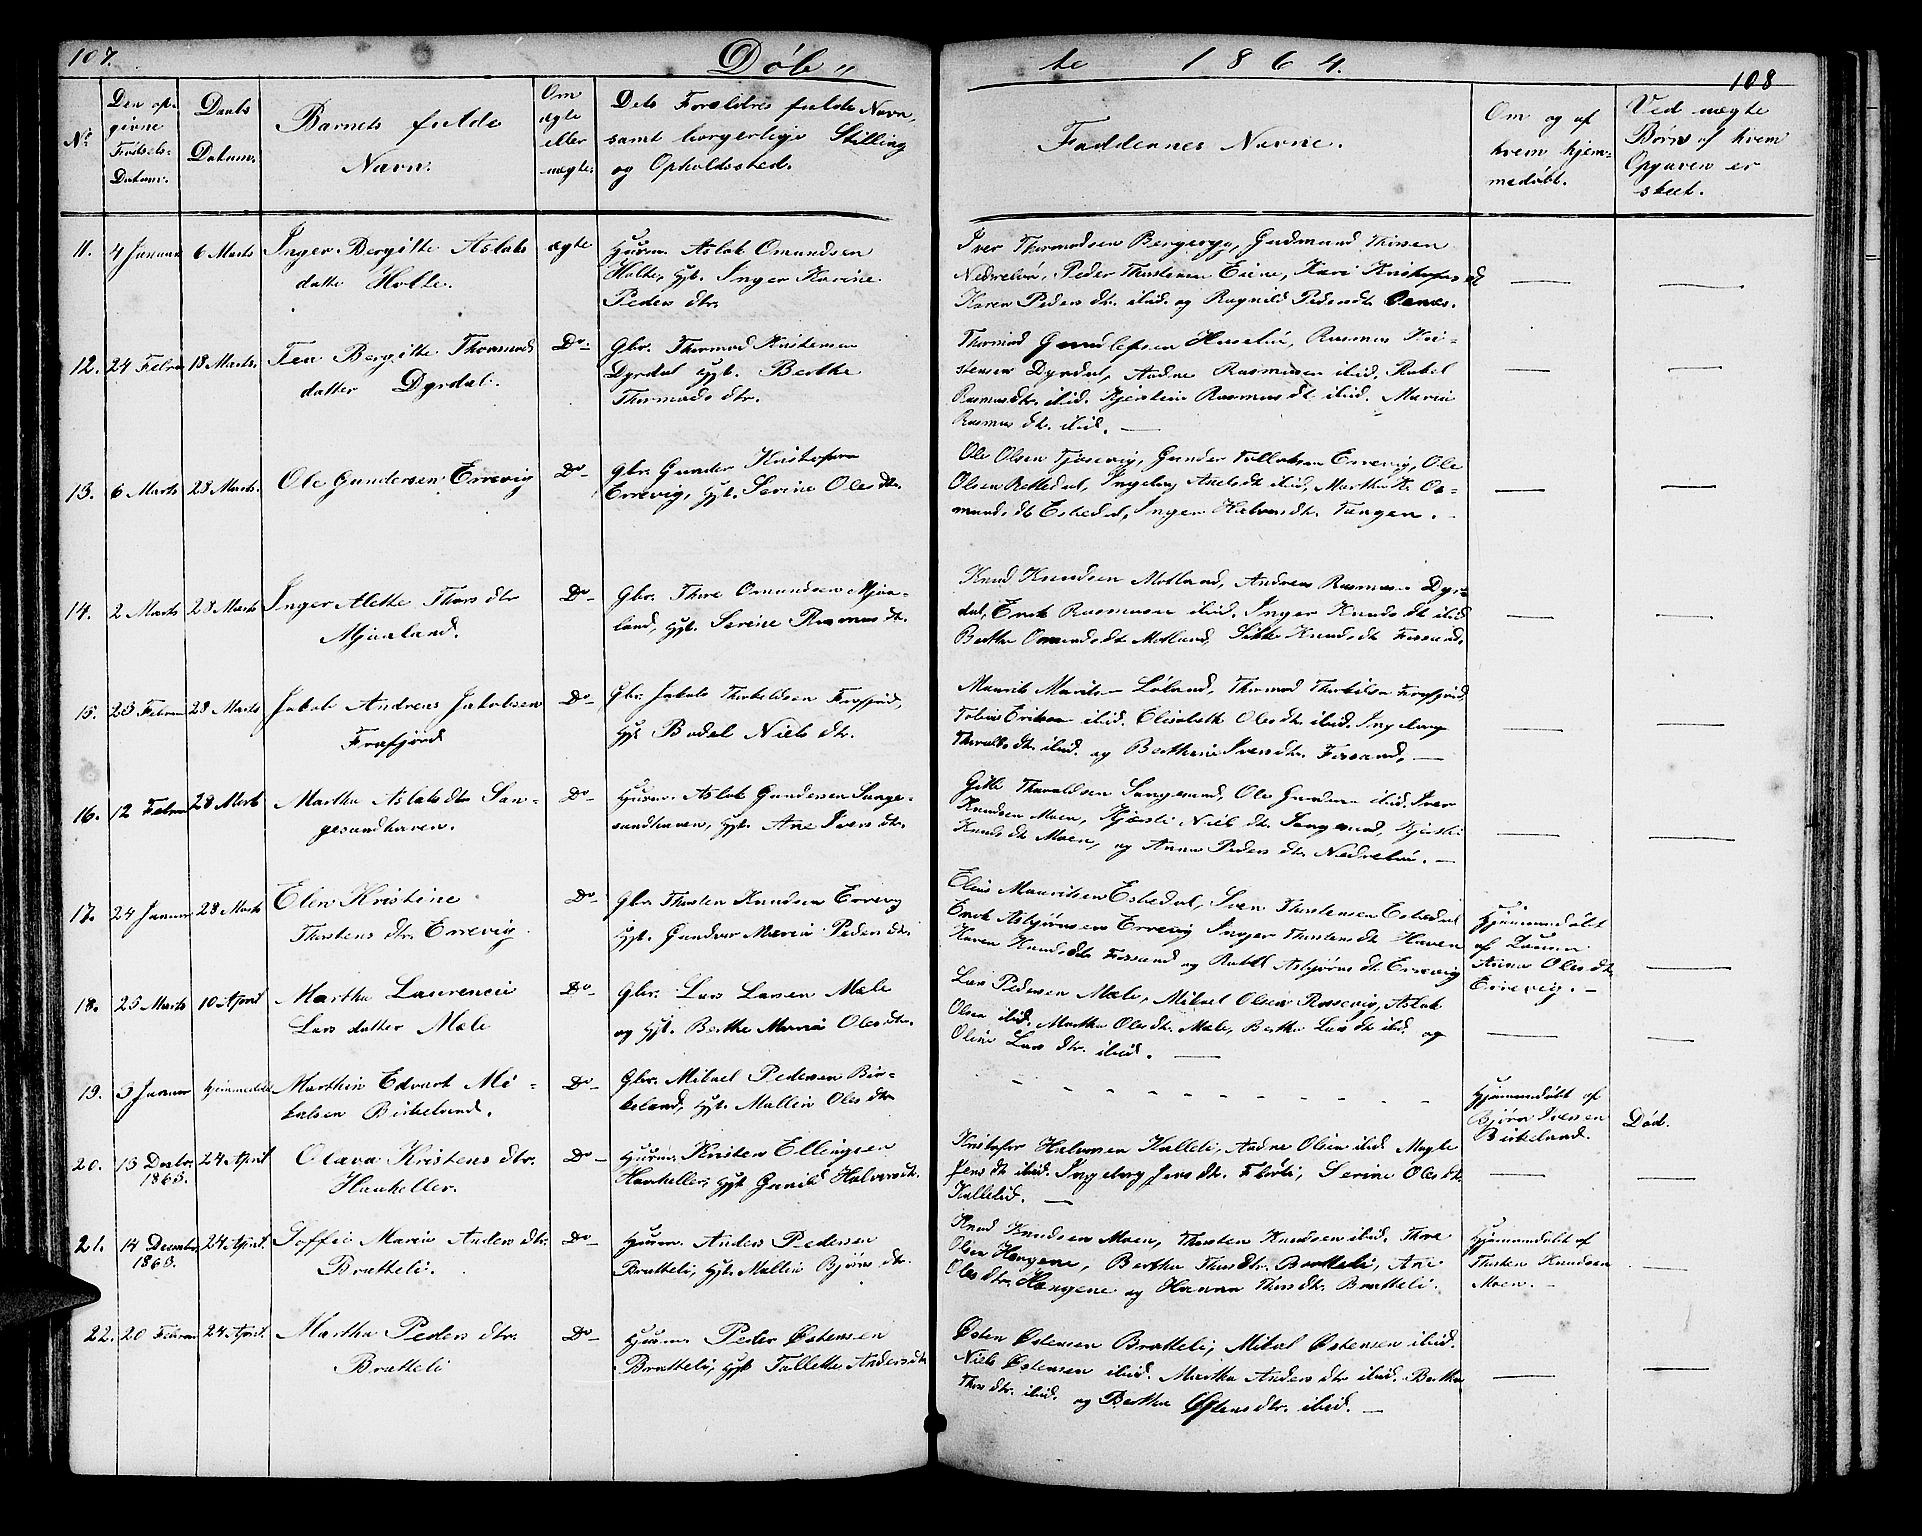 107.
Døb„
te 1864.
108
No
Den op-
givne
Fødsels-
Datum.
Daabs
Datum.
Barnets fulde
Navn.
Om
ægte
eller
uægte.
Dets Forældres fulde Navn,
samt borgerlige Stilling
og Opholdssted.
Faddernes Navne.
Om og af
hvem hjem-
medøbt.
Ved uægte
Børn af hvem
Opgaven er
skeet.
11. 4 Januar 6 Marts Inger Bergitte Aslaks
datter Holte.
ægte
Husm. Aslak Omundsen
Holte, Hst. Inger Karine
Peders dtr.
Iver Thormodsen Bergeryg, Gudmund
Nedrebø, Peder Thorstensen Eiene, Kari
Karen Peders dt. ibid. og Ragnild Peders dt.
12. 24 Febru 18 Marts. Tea Bergitte Thormods
datter Dyrdal.
Do
Gbr. Thormod Kristensen
Dyrdal Hst. Berthe
Thormods dtr.
Thormod Gundlefsen Rasmus Kri-
stensen Dyrdal, Andne Rasmusen ibid. Rakel
Rasmus dtr. ibid. Kjersten Rasmus dt ibid. Maria
Rasmus dtr. ibid. —
13. 6 Marts 28 Marts. Ole Gundersen Errevig
Do
Gbr. Gunder Kristofersen
Errevig, Hst. Serine Oles dtr.
Ole Olsen Tjosevig, Gunder Tollaksen Errevig, Ole
Olsen Rettedal, Ingeborg Axels dt ibid, Martha K. Os-
munds dt Eskedal, Inger Halvors dtr. Tungen. -
14. 2 Marts 28 Marts Inger Alette Thors dtr
Mjaaland.
Do
Gbr. Thore Omundsen Mjaa-
land, Hst. Serine Rasmus dt.
Knud Knudsen Motland, Andreas Rasmus- Dyr-
dal, Enok Rasmusen ibid. Inger Knuds dt ibid
Berthe Omunds dt Motland, Knuds dt Fossand.
15. 23 Febru 28 Marts Jakob Andreas Jakobsen
Frafjord
Do
Gbr. Jakob Thorkildsen Frafjord,
Hst Bodel Niels dtr.
Maurits Løland, Thormod Frafjord,
Tobias Eriksen ibid. Elisabeth Oles dt. ibid. Ingeborg
ibid. og Berthine Svens dtr. Fossand. —
16. 12 Febru 28 Marts Martha Aslaks dtr San-
gesandhaven.
Do
Husm. Aslak Gundersen Sange-
sandhaven, Hst. Ane Ivers dtr.
Gitle Thoraldsen Sangesand, Ole ibid. Iver
Knudsen Moen, Kjersti Niels dt. Sangesand, Kjersti
Knuds dt Moen, og Anna Peders dtr. Nedrebø. —
17. 24 Januar 28 Marts Elen Kristine
Thorstens dtr. Errevig.
Do
Gbr. Thorsten Knudsen Errevig
Hst. Gundvor Maria Peders dtr
Elias Mauritsen Eskedal, Sven Thorstensen Eskedal
Enok Asbjørnsen Errevig Inger Thorstens dt Haven
Karen Knuds dtr Fossand og Rakel Asbjørns dt. Errevig
Hjemmedøbt
af
Anna Oles dt.
Errevig. -
18. 25 Marts 10 April Martha Laurencia
Lars datter Mæle
Do
Gbr. Lars Larsen Mæle
og Hst. Berthe Maria Oles dtr.
Lars Pedersen Mæle, Mikael Olsen Rossevig, Aslak
Olsen ibid. Martha Oles dt. Mæle, Bertha Lars dt ibid og
Oline Lars dtr. ibid. —
19. 3 Januar Hjemmedøbt Marthin Edvart Mi-
kalsen Birkeland.
Do
Gbr. Mikael Pedersen Bir-
keland, Hst. Mallin Oles dtr
Hjemmedøbt af
Bjørn Iversen
Birkeland.
Død.
20. 13 Decbr.
1863.
24 April Olava Kristens dtr.
Haukeller.
Do
Husm. Kristen Ellingsen
Haukeller, Hst Gunild Halvors dt.
Kristofer Halvorsen Kalleli, Andne Olsen ibid. Magle
Jens dt. ibid. Ingeborg Jens dt. Flørli, Serine Oles dt.
Kallelid. —
21. 14 Decembr
1863.
24 April. Soffei Maria Anders dtr.
Bratteli.
Do
Husm. Anders Pedersen
Bratteli, Hst. Mallin Bjørns dtr.
Knud Knudsen Moen, Thorsten Knudsen ibid. Thore
Olsen Hengene, Bertha Thors dtr. Bratteli, Ane
Oles dtr. Hengene og Hanna Thors dtr. Bratteli.
Hjemmedøbt af
Thorsten Knudsen
Moen. -
22. 20 Februar 24 April. Martha Peders dtr.
Bratteli
Do
Husm. Peder Østensen
Bratteli, Hst Tallette Anders dtr
Østen Østensen Bratteli, Mikal Østensen ibid.
Niels Østensen ibid. Martha Anders dtr ibid. Bertha
Thors dtr. ibid. og Bertha Østens dtr. ibid. —